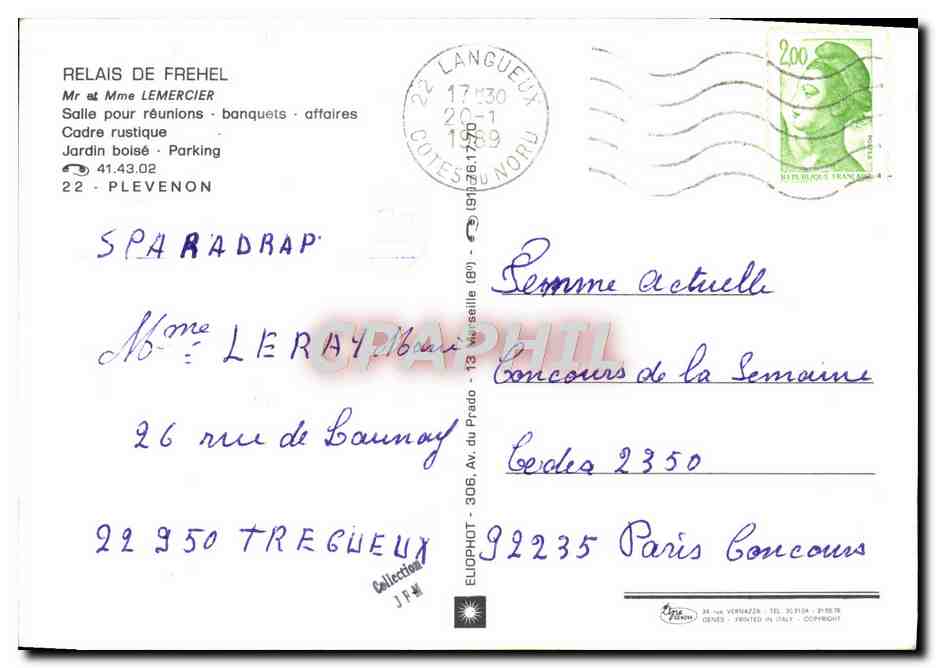 RELAIS DE FREHEL
Mr et Mme LEMERCIER
Salle pour réunions - banquets - affaires
Cadre rustique
Jardin boisé - Parking
41.43.02
22 - PLEVENON
22 LANGUEUX
17H30
20-1
1989
COTES DU NORD
2,00
REPUBLIQUE FRANÇAISE
SPARADRAP
Mme LERAY Marie
26 rue de Launay
22950 TREGUEUX
Collection
J P-M
CPAPHIL
ELIOPHOT - 306, Av. du Prado - 13 Marseille (8e) - (91) 76.17.70
Femme Actuelle
Concours de la Semaine
Cedex 2350
92235 Paris Concours
GENES - PRINTED IN ITALY - COPYRIGHT